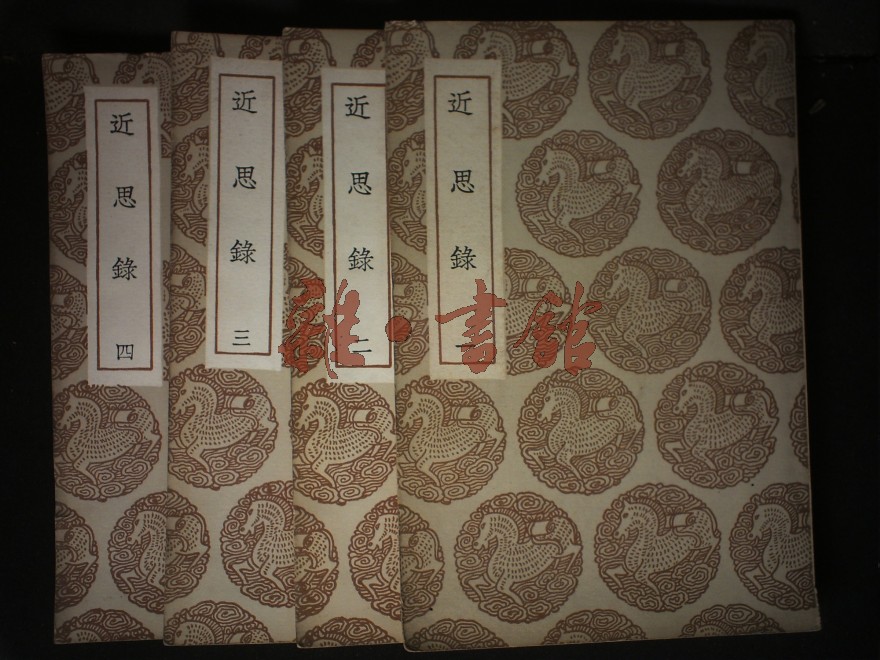 近思錄 一
近思錄 二
近思錄 三
近思錄 四
雜·書館